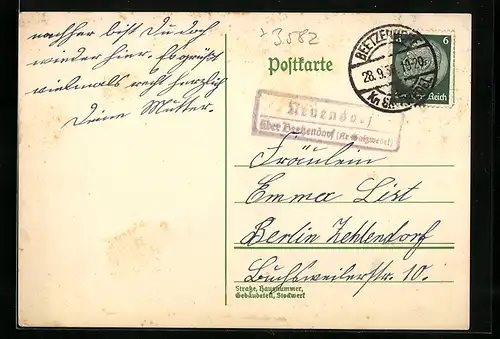 nachher bist Du doch
wieder hier. Es grüßt
vielmals recht herzlich
Deine Mutter.
3582
Postkarte
BEETZENDORF
28.9.3
19-20
6
Reich
Neuendorf
über Beetzendorf (Kr Salzwedel)
Fräulein
Emma List
Berlin Zehlendorf
Buchsweilerstr. 10.
Straße, Hausnummer,
Gebäudeteil, Stockwerk